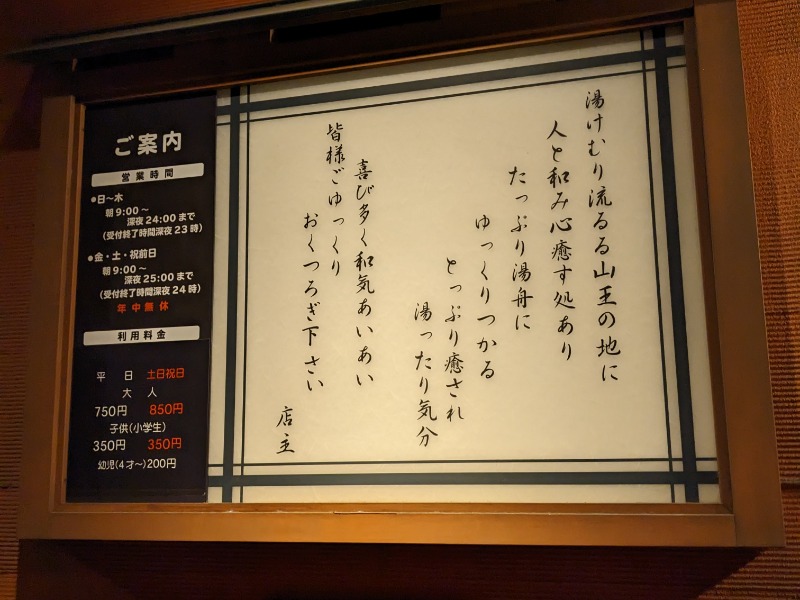 ご案内
営業時間
●日～木
朝9:00～
深夜24:00まで
(受付終了時間深夜23時)
●金・土・祝前日
朝9:00～
深夜25:00まで
(受付終了時間深夜24時)
年中無休
利用料金
平日 土日祝日
大人
750円 850円
子供(小学生)
350円 350円
幼児(4才～)200円
湯けむり流るる山王の地に
人と和み心癒す処あり
たっぷり湯舟に
ゆっくりつかる
とっぷり癒され
湯ったり気分
喜び多く和気あいあい
皆様ごゆっくり
おくつろぎ下さい
店主